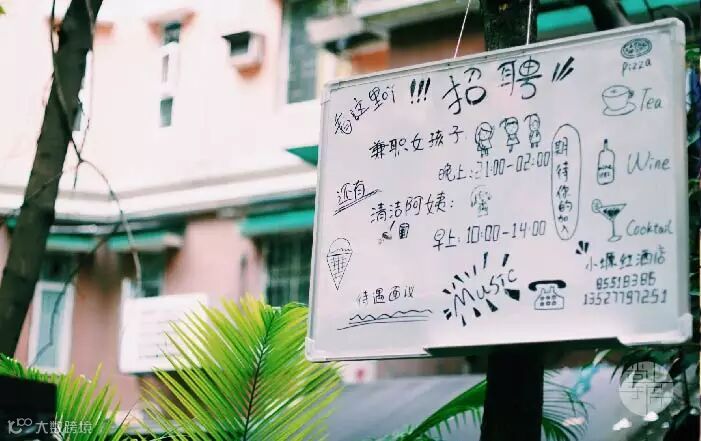 看这里吖!!!
招聘
兼职女孩子:
晚上:21:00-02:00
还有
清洁阿姨:
早上:10:00-14:00
待遇面议
期待你的加入
Music
pizza
Tea
Wine
Cooktail
酒店
85518386
13527797251
大数跨境